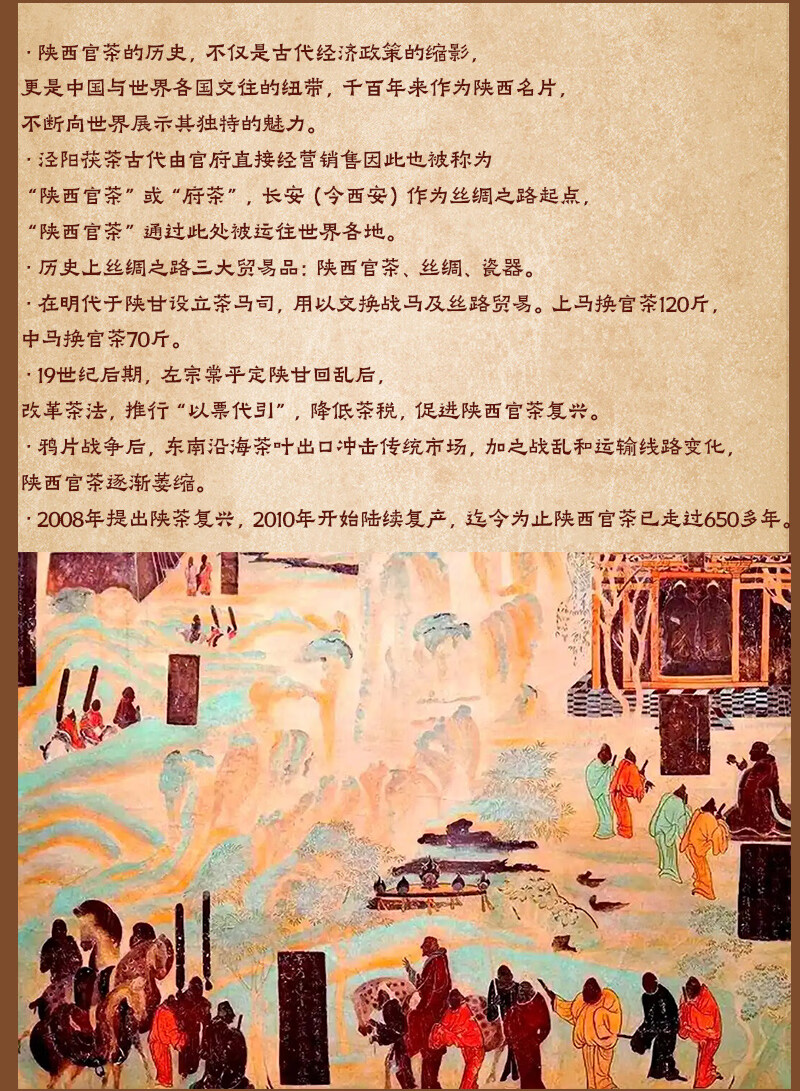 ·陕西官茶的历史，不仅是古代经济政策的缩影，
更是中国与世界各国交往的纽带，千百年来作为陕西名片，
不断向世界展示其独特的魅力。
·泾阳茯茶古代由官府直接经营销售因此也被称为
“陕西官茶”或“府茶”，长安（今西安）作为丝绸之路起点，
“陕西官茶”通过此处被运往世界各地。
·历史上丝绸之路三大贸易品：陕西官茶、丝绸、瓷器。
·在明代于陕甘设立茶马司，用以交换战马及丝路贸易。上马换官茶120斤，
中马换官茶70斤。
·19世纪后期，左宗棠平定陕甘回乱后，
改革茶法，推行“以票代引”，降低茶税，促进陕西官茶复兴。
·鸦片战争后，东南沿海茶叶出口冲击传统市场，加之战乱和运输线路变化，
陕西官茶逐渐萎缩。
·2008年提出陕茶复兴，2010年开始陆续复产，迄今为止陕西官茶已走过650多年。